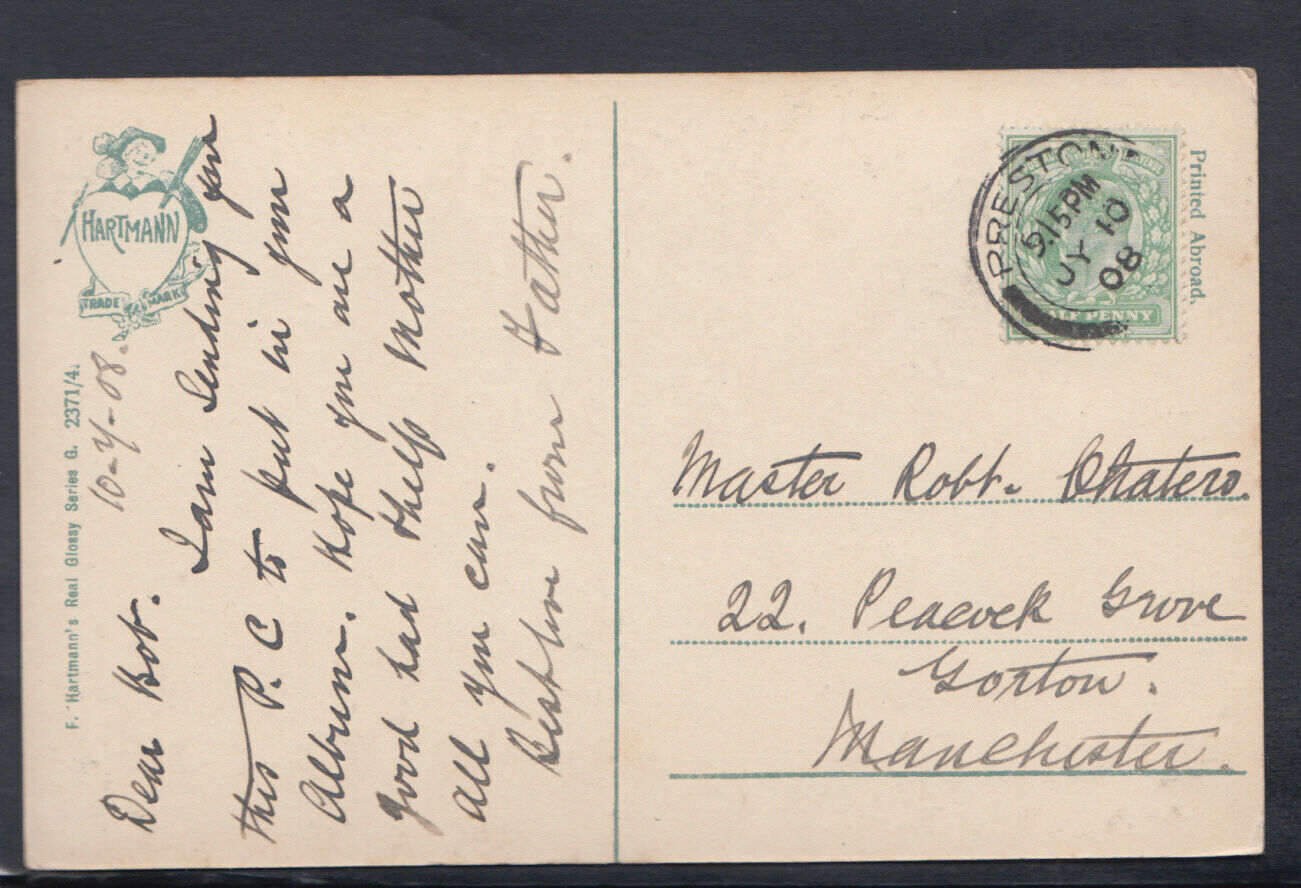 HARTMANN
TRADE MARK
F. Hartmann's Real Glossy Series G. 2371/4.
10-7-08.
Dear Bob.
I am sending you
this P. C to put in your
Album. Hope you are a
good lad & help Mother
all you can.
Best love from Father.
PRESTON
9.15PM
JY 10
08
HALF PENNY
Printed Abroad.
Master Robt. Chaters.
22. Peacock Grove
Gorton.
Manchester.